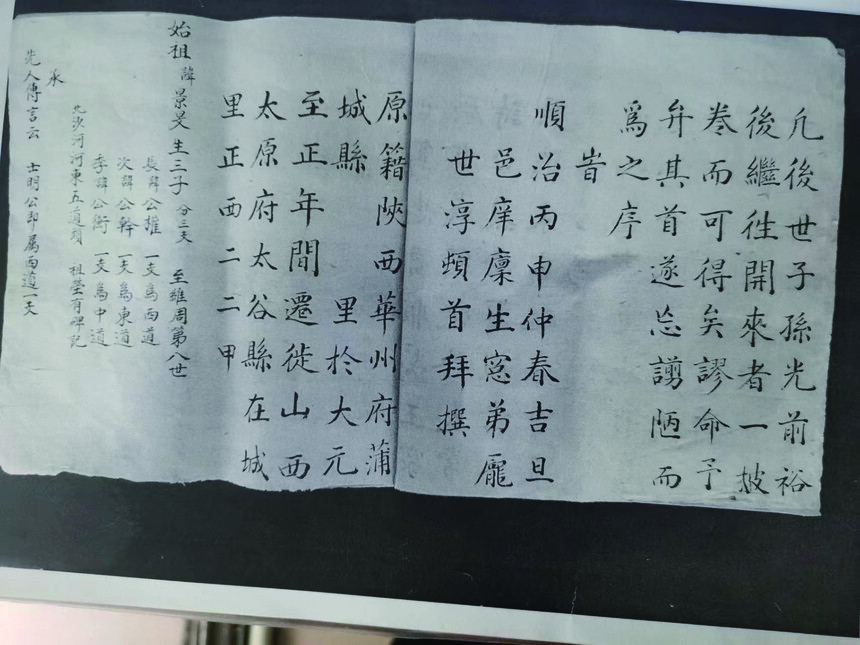 凢後世子孫光前裕
後繼徃開來者一披
巻而可得矣謬命予
弁其首遂忘謭陋而
爲之序
旹
順治丙申仲春吉旦
邑庠廩生窓弟龎
世淳頓首拜撰
原籍陝西華州府蒲
城縣 里於大元
至正年間遷徙山西
太原府太谷縣在城
里正西二二甲
始祖諱景旻生三子 分三支 至維周第八世
長諱公權 一支爲西道
次諱公幹 一支爲東道
季諱公衡 一支爲中道
北沙河河東五道頭 祖塋有碑記
承
先人傳言云 士明公即属西道一支